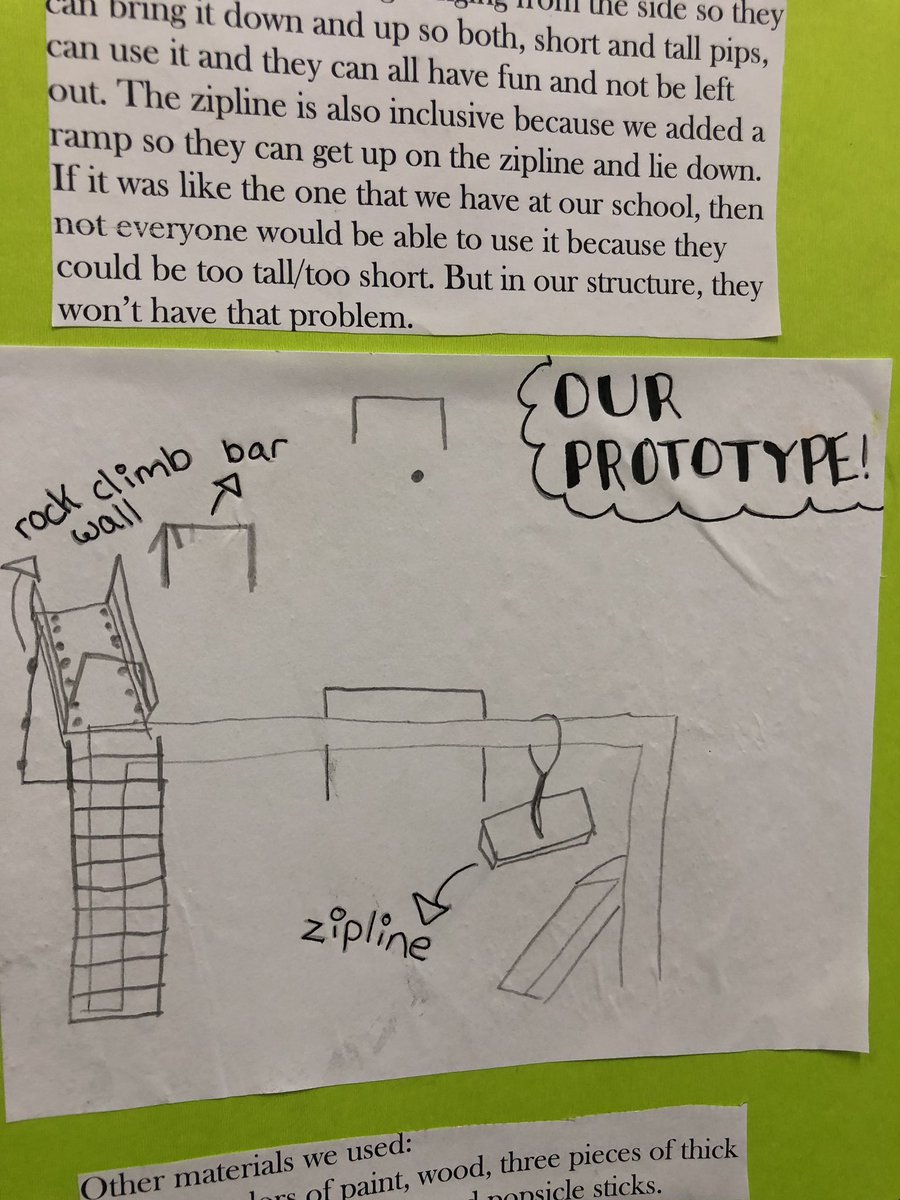 can bring it down and up so both, short and tall pips,
from the side so they
can use it and they can all have fun and not be left
out. The zipline is also inclusive because we added a
ramp so they can get up on the zipline and lie down.
If it was like the one that we have at our school, then
not everyone would be able to use it because they
could be too tall/too short. But in our structure, they
won't have that problem.
OUR
PROTOTYPE!
rock climb
wall
bar
zipline
Other materials we used:
of paint, wood, three pieces of thick
popsicle sticks.